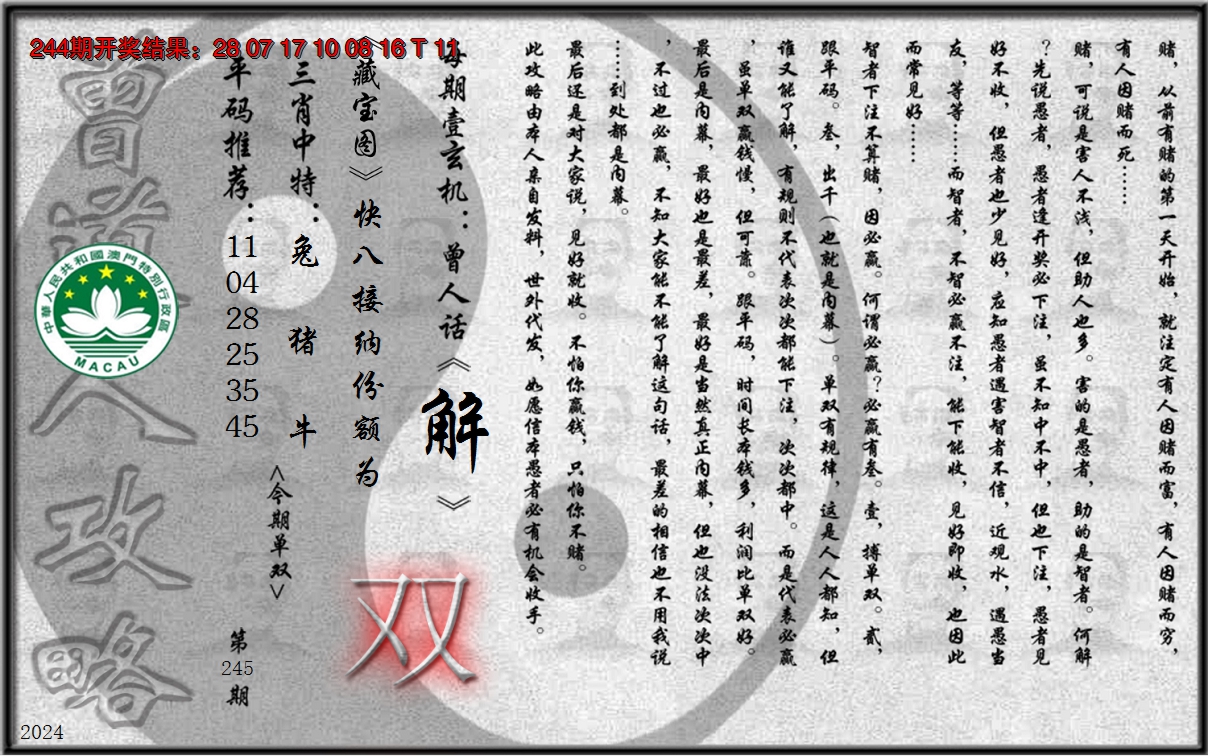 244期开奖结果：28 07 17 10 08 16 T 11
赌，从前有赌的第一天开始，就注定有人因赌而富，有人因赌而穷，
有人因赌而死……
赌，可说是害人不浅，但助人也多。害的是愚者，助的是智者。何解
？先说愚者，愚者逢开奖必下注，虽不知中不中，但也下注，愚者见
好不收，但愚者也少见好，应知愚者遇害智者不信，近观水，遇愚当
友，等等……而智者，不智必赢不注，能下能收，见好即收，也因此
而常见好……
智者下注不算赌，因必赢。何谓必赢？必赢有叁。壹，搏单双。贰，
跟平码。叁，出千（也就是内幕）。单双有规律，这是人人都知，但
谁又能了解，有规则不代表次次都能下注，次次都中。而是代表必赢
，虽单双赢钱慢，但可靠。跟平码，时间长本钱多，利润比单双好。
最后是内幕，最好也是最差，最好是当然真正内幕，但也没法次次中
，不过也必赢，不知大家能不能了解这句话，最差的相信也不用我说
……到处都是内幕。
最后还是对大家说，见好就收。不怕你赢钱，只怕你不赌。
此攻略由本人亲自发料，世外代发，如愿信本愚者必有机会收手。
每期壹玄机：曾人话《解》
《藏宝图》快八接纳份额为
双
三肖中特：兔 猪 牛
<今期单双>
平码推荐：11 04 28 25 35 45
第245期
曾道人攻略
中華人民共和國澳門特別行政區
MACAU
2024